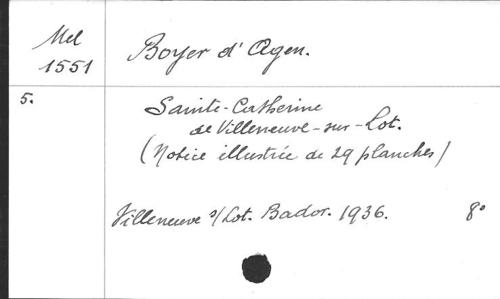 Mel
1551
Boyer d'Agen.
5.
Sainte-Catherine
de Villeneuve-sur-Lot.
(Notice illustrée de 29 planches)
Villeneuve s/Lot. Bador. 1936. 8°